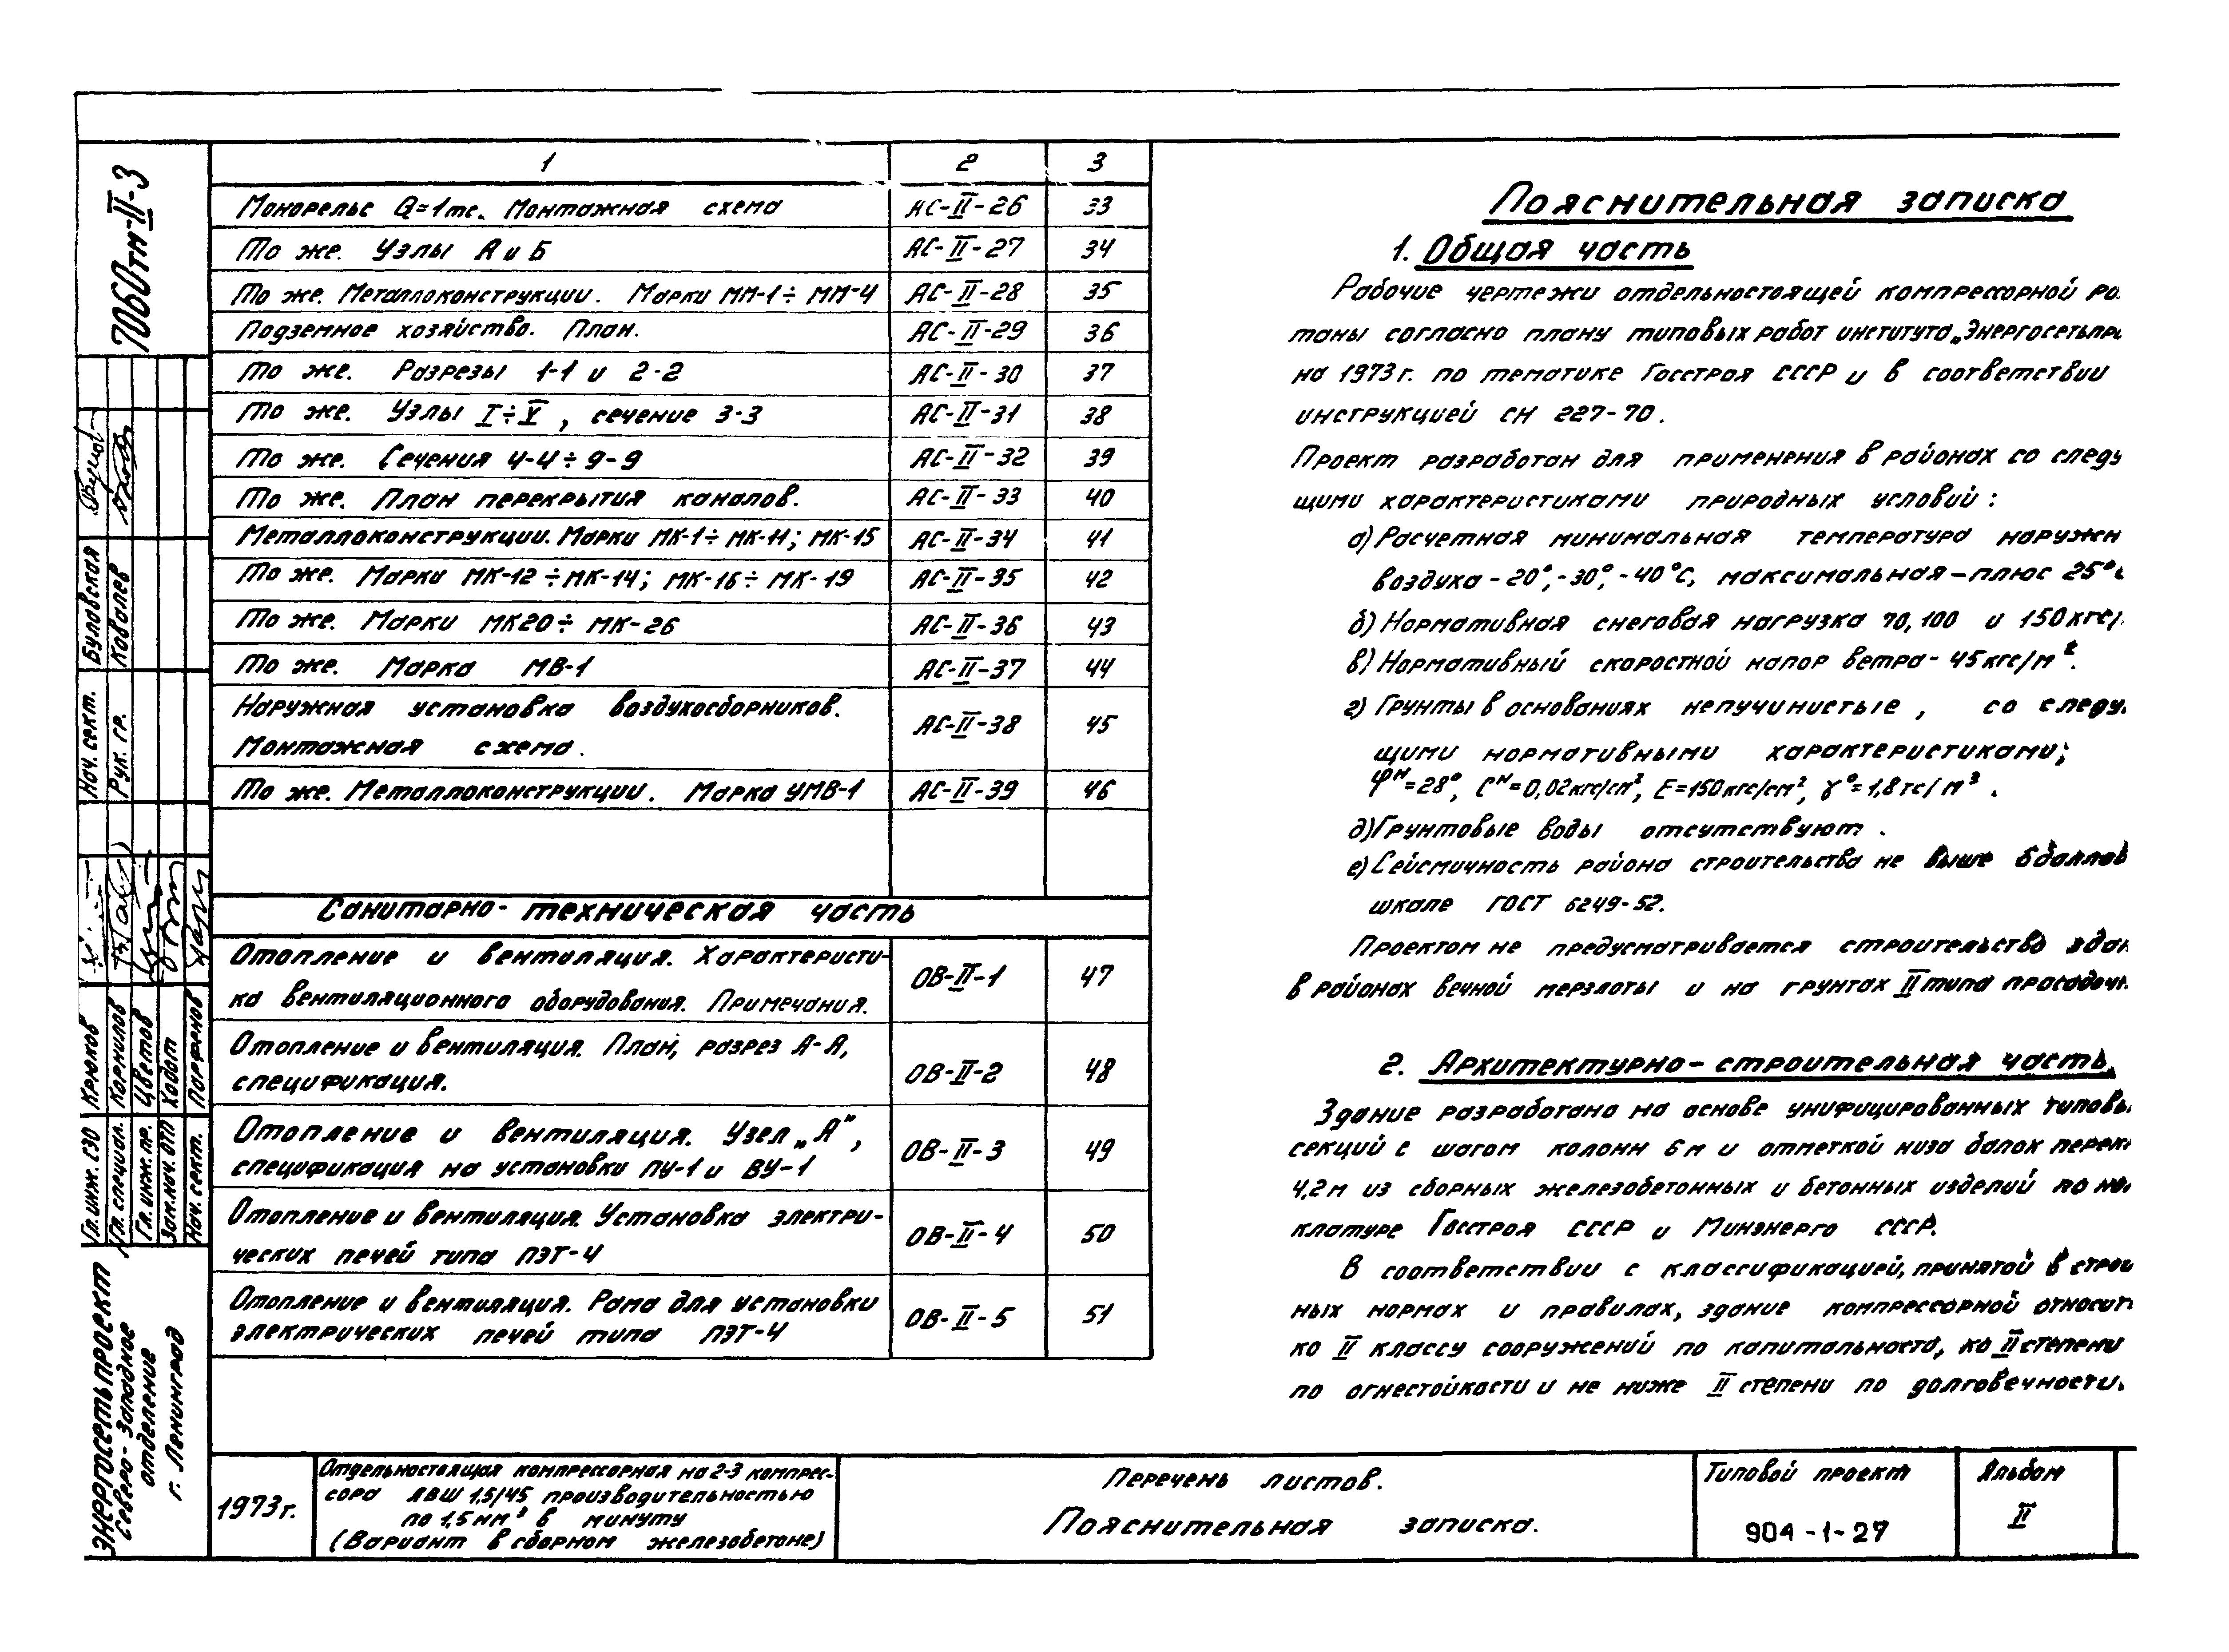 7060тм-II-3
1 2 3
Монорельс Q=1тс. Монтажная схема АС-II-26 33
То же. Узлы А и Б АС-II-27 34
То же. Металлоконструкции. Марки ММ-1÷ММ-4 АС-II-28 35
Подземное хозяйство. План. АС-II-29 36
То же. Разрезы 1-1 и 2-2 АС-II-30 37
То же. Узлы I÷V, сечение 3-3 АС-II-31 38
То же. Сечения 4-4÷9-9 АС-II-32 39
То же. План перекрытия каналов. АС-II-33 40
Металлоконструкции. Марки МК-1÷МК-11; МК-15 АС-II-34 41
То же. Марки МК-12÷МК-14; МК-16÷МК-19 АС-II-35 42
То же. Марки МК20÷МК-26 АС-II-36 43
То же. Марка МВ-1 АС-II-37 44
Наружная установка воздухосборников.
Монтажная схема. АС-II-38 45
То же. Металлоконструкции. Марка УМВ-1 АС-II-39 46
Санитарно-техническая часть
Отопление и вентиляция. Характеристи-
ка вентиляционного оборудования. Примечания. ОВ-II-1 47
Отопление и вентиляция. План, разрез А-А,
спецификация. ОВ-II-2 48
Отопление и вентиляция. Узел „А",
спецификация на установки ПУ-1 и ВУ-1 ОВ-II-3 49
Отопление и вентиляция. Установка электри-
ческих печей типа ПЭТ-4 ОВ-II-4 50
Отопление и вентиляция. Рама для установки
электрических печей типа ПЭТ-4 ОВ-II-5 51
Пояснительная записка
1. Общая часть
Рабочие чертежи отдельностоящей компрессорной ра
таны согласно плану типовых работ института „Энергосетьпр
на 1973г. по тематике Госстроя СССР и в соответствии
инструкцией СН 227-70.
Проект разработан для применения в районах со следу
щими характеристиками природных условий:
а) Расчетная минимальная температура наружн
воздуха -20°, -30°, -40°С, максимальная - плюс 25°С
б) Нормативная снеговая нагрузка 70, 100 и 150кгс/
в) Нормативный скоростной напор ветра - 45кгс/м².
г) Грунты в основаниях непучинистые, со следу
щими нормативными характеристиками;
φᴴ=28°, Cᴴ=0,02кгс/см², E=150кгс/см², γ°=1,8тс/м³.
д) Грунтовые воды отсутствуют.
е) Сейсмичность района строительства не выше 6 баллов
шкале ГОСТ 6249-52.
Проектом не предусматривается строительство здан
в районах вечной мерзлоты и на грунтах II типа просадочн
2. Архитектурно-строительная часть.
Здание разработано на основе унифицированных типовы
секций с шагом колонн 6м и отметкой низа балок перек
4,2м из сборных железобетонных и бетонных изделий по но
клатуре Госстроя СССР и Минэнерго СССР.
В соответствии с классификацией, принятой в строи
ных нормах и правилах, здание компрессорной относит
ко II классу сооружений по капитальности, ко II степени
по огнестойкости и не ниже II степени по долговечности.
Нач. сект. Буловская
Рук. гр. Ковалев
Гл. инж. СЗО Крюков
Гл. специал. Корнилов
Гл. инж. пр. Цветов
Зам. нач. ОТП Ходот
Нач. сект. Парфенов
Энергосетьпроект
Северо-Западное
отделение
г. Ленинград
1973г.
Отдельностоящая компрессорная на 2-3 компрес-
сора АВШ 1,5/45 производительностью
по 1,5 нм³ в минуту
(Вариант в сборном железобетоне)
Перечень листов.
Пояснительная записка.
Типовой проект
904-1-27
Альбом
II